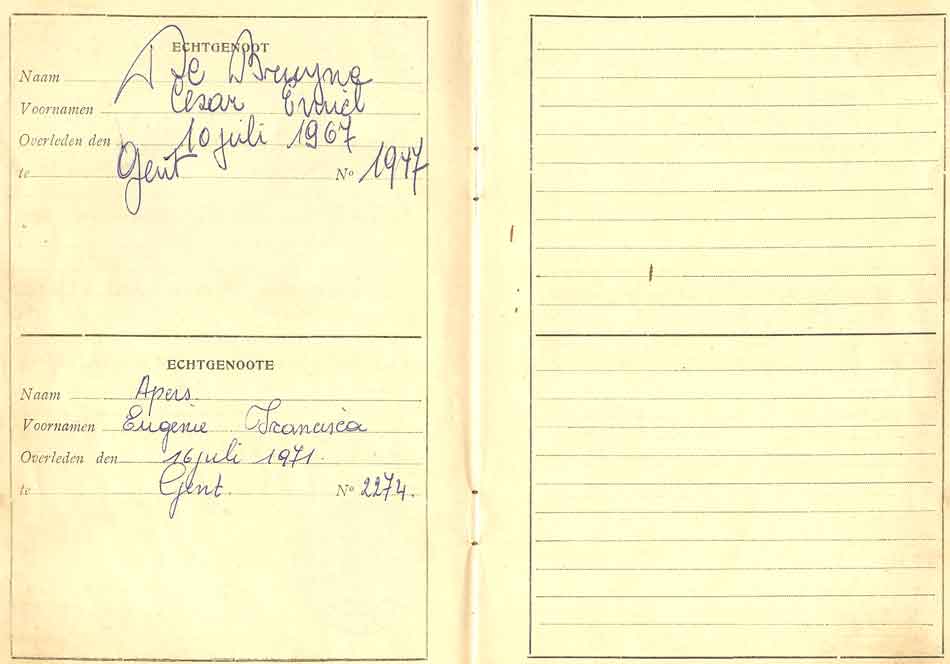 ECHTGENOOT
Naam De Bruyne
Voornamen Cesar Emiel
Overleden den 10 juli 1967
te Gent Nº 1947
ECHTGENOOTE
Naam Apers
Voornamen Eugenie Francisca
Overleden den 16 juli 1971.
te Gent. Nº 2274.